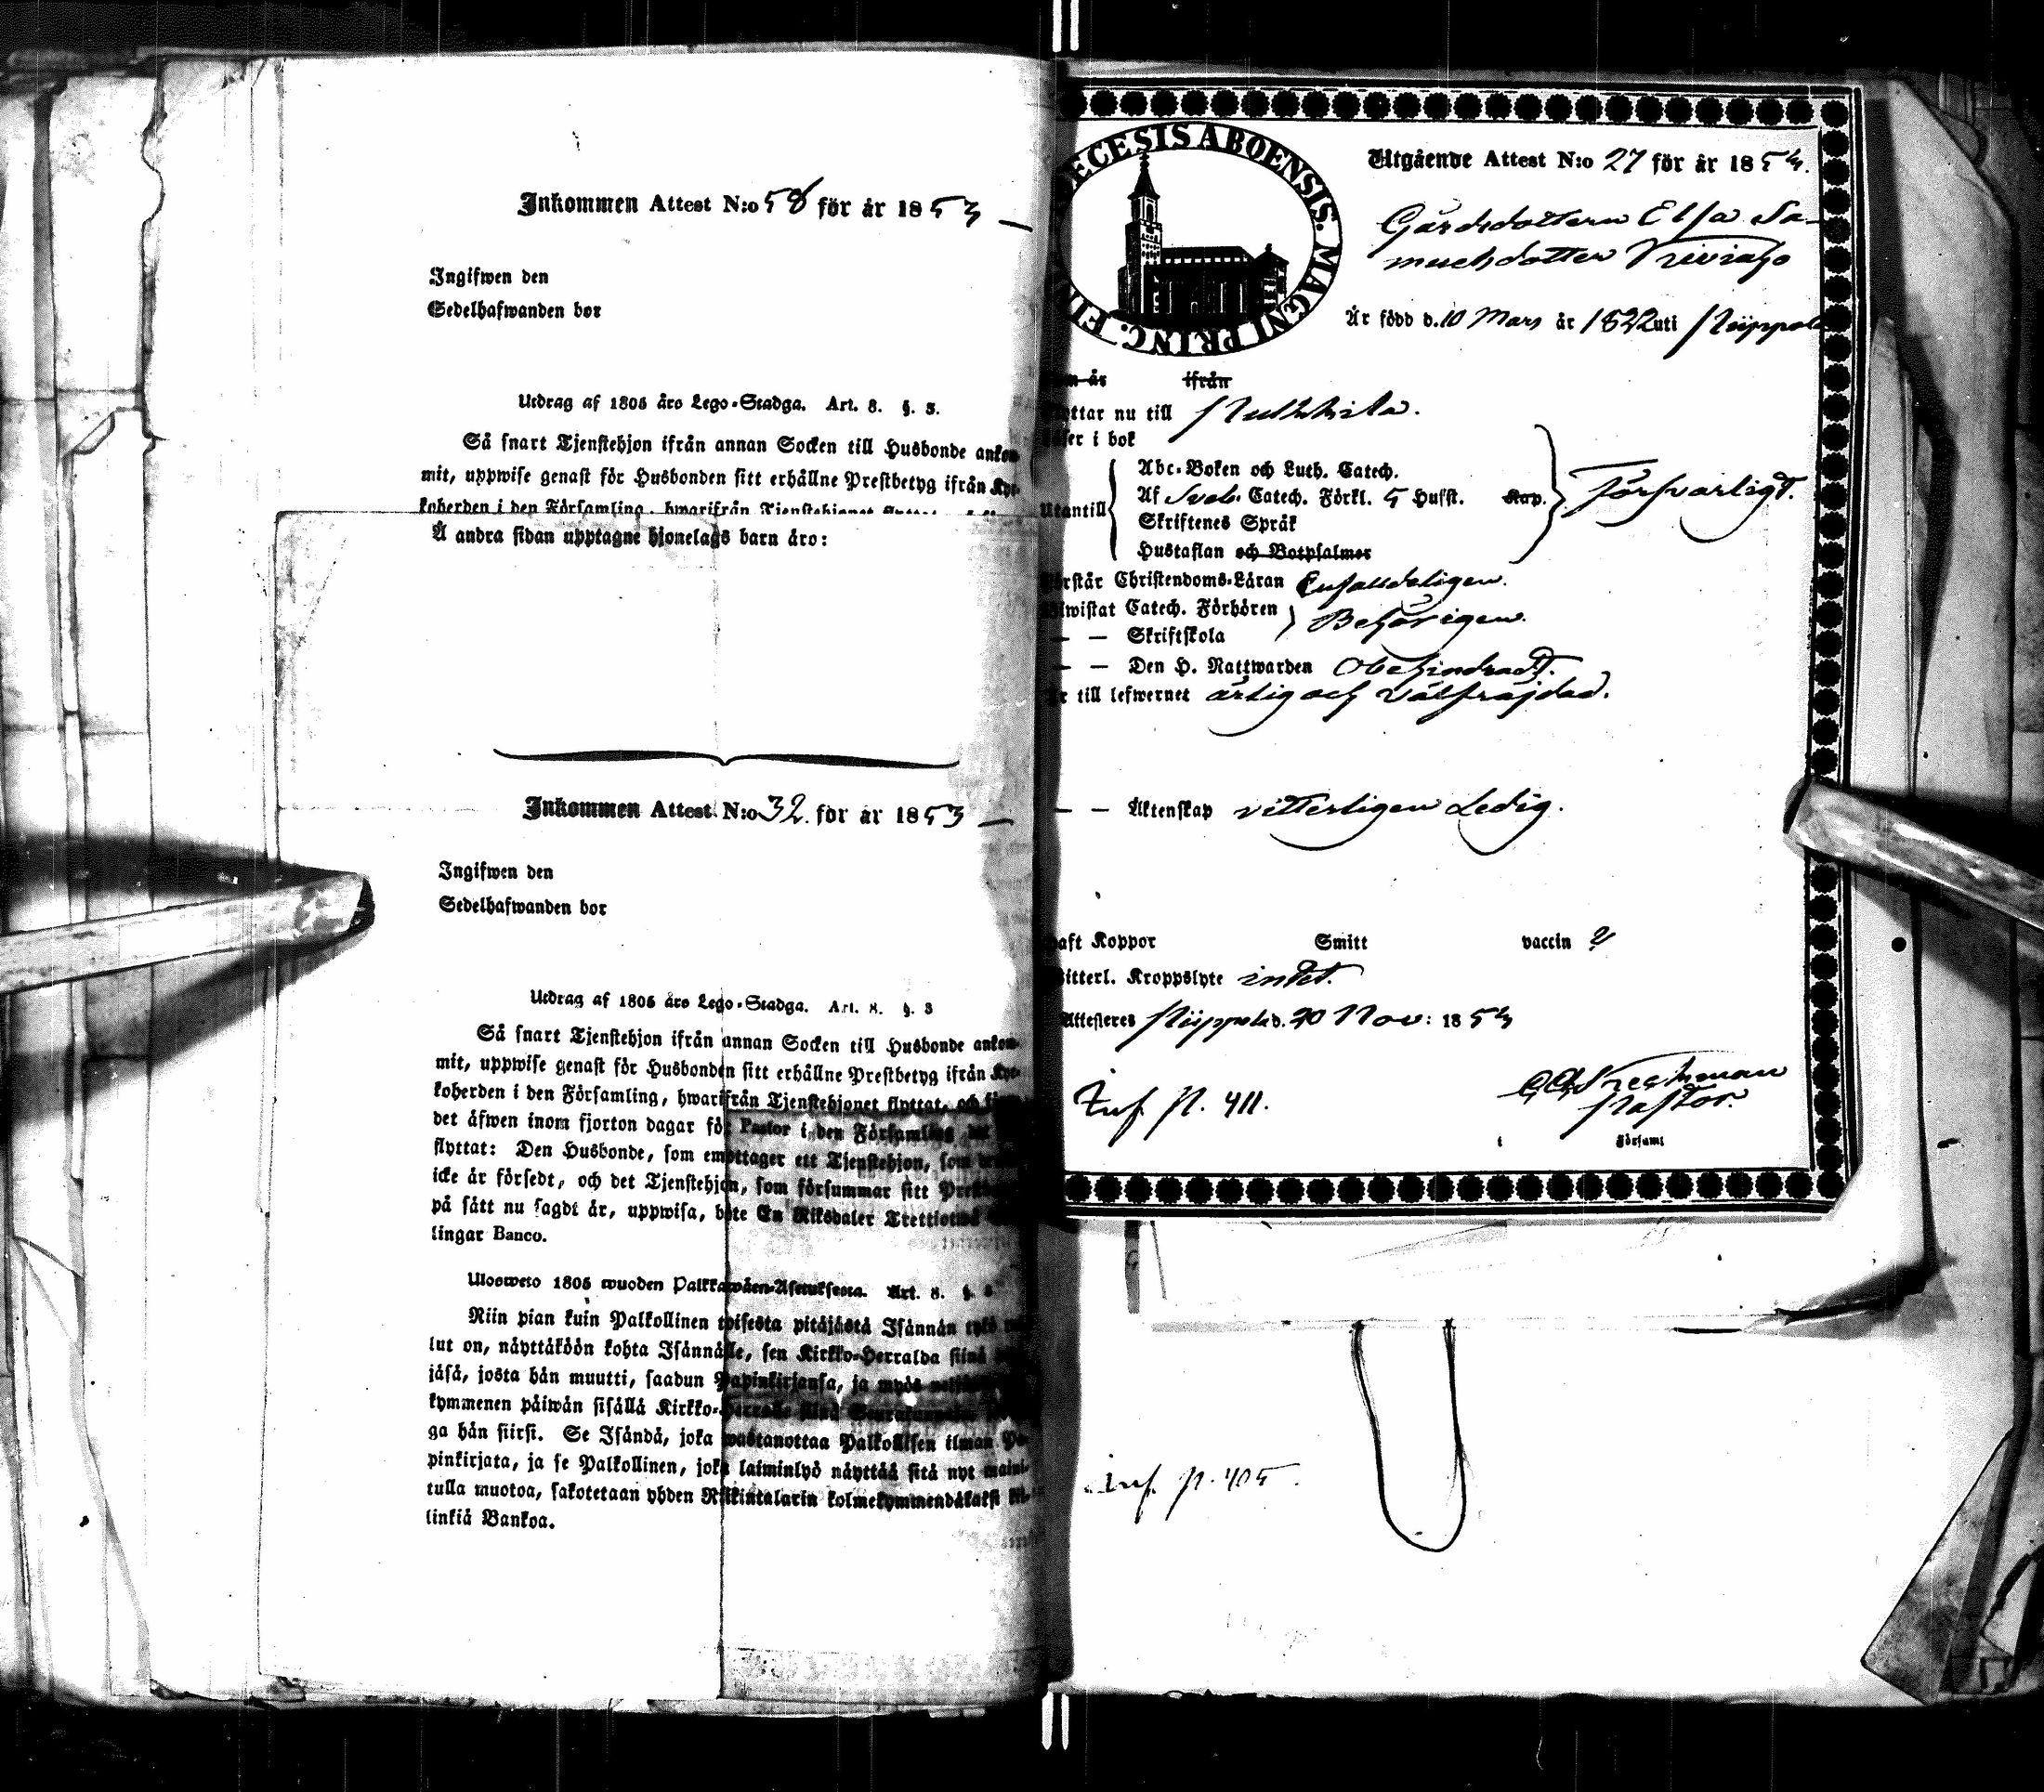 Inkommen Attest N:o 58 för år 1853
Ingifwen den
Sedelhafwanden bor
Utdrag af 1805 års Lego-Stadga. Art. 8. §. 3.
Så snart Tjenstehjon ifrån annan Socken till Husbonde
mit, uppwise genast för Husbonden sitt erhållne Prestbetyg ifrån
koherden i den Församling, hwarifrån Tjenstehjonet
Å andra sidan upptagne hjonelags barn äro:
Inkommen Attest N:o 32. för år 1853
Ingifwen den
Sedelhafwanden bor
Utdrag af 1805 års Lego-Stadga. Art. 8. §. 3
Så snart Tjenstehjon ifrån annan Socken till Husbonde ankom-
mit, uppwise genast för Husbonden sitt erhållne Prestbetyg ifrån
koherden i den Församling, hwarifrån Tjenstehjonet flyttat, och
det äfwen inom fjorton dagar för Pastor i den Församling
flyttat: Den Husbonde, som emottager ett Tjenstehjon, som
icke är försedt, och det Tjenstehjon, som försummar sitt
på sätt nu sagdt är, uppwisa, böte En Riksdaler Trettiotwå
lingar Banco.
Ulosweto 1805 wuoden Palkkawäen-Asetuksesta. Art. 8. §.
Niin pian kuin Palkollinen toisesta pitäjästä Isännän tykö
lut on, näyttäköön kohta Isännälle, sen Kirkko-Herralda siinä
jäsä, josta hän muutti, saadun Papinkirjansa, ja myös
kymmenen päiwän sisällä Kirkko-Herralle siinä
ga hän siirsi. Se Isändä, joka wastanottaa Palkollisen ilman Pa-
pinkirjata, ja se Palkollinen, joka laiminlyö näyttää sitä nyt maini-
tulla muotoa, sakotetaan yhden Riikintalarin kolmekymmendäkaksi
linkiä Bankoa.
ECESIS ABOENSIS. MAGNI PRINC. FIN
Utgående Attest N:o 27 för år 1853.
Gårdsdottern Elsa Sa-
muelsdotter
Är född d. 10 Mars år 1832 uti Piippola
ifrån
ttar nu till Pulkkila.
i bok
Abc-Boken och Luth. Catech.
Af Sveb. Catech. Förkl. 5 Hufst. Kap. Försvarligt.
Utantill
Skriftenes Språk
Hustaflan och Botpsalmer
rstår Christendoms-Läran Enfaldeligen.
wistat Catech. Förhören Behörigen.
— — Skriftskola
— — Den H. Nattwarden Obehindradt.
r till lefwernet ärlig och välfräjdad.
— — Äktenskap vitterligen Ledig.
aft Koppor Smitt vaccin
itterl. Kroppslyte intet.
Attesteres Piippola d. 20 Nov: 1853
Pastor.
Inf. p. 411.
Församl
Inf. p. 405.